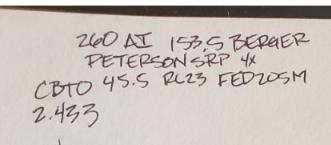 260 AI 153.5 BERGER
PETERSON SRP 4X
CBTO 45.5 RL23 FED205M
2.433